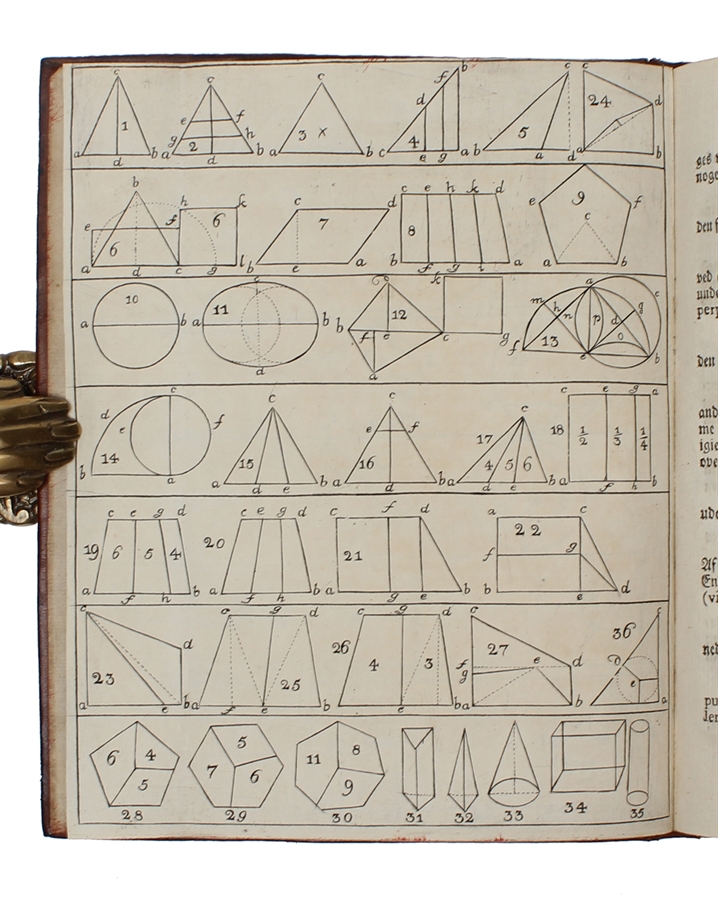 c c c b c c
1 e f f d 24 d
g h d
a 2 3 x 4 5
a d b a d b a b c e g a b a d a b
b h k c d c e h k d
e f 6 7 8 e 9 f
6 c
a d c g l b e a b f g i a a b
c c k c
m h n p d g
10 11 12
a b a b b f e c g f 13 o e b
d a
c c c c c e g a
d e f e f 17 18 1/2 1/3 1/4
14 15 16 4 5 6
b a a d e b a d b a d e b a f h b
c e g d c e g d c f d a c
19 6 5 4 20 21 22
f g
a f h b a f h b a g e b b e d
c g d c g d c c
d 26 36
27
23 25 4 3 f g e d e
a e b a f e b a e b a b a
6 4 5 11 8
5 7 6 9
28 29 30 31 32 33 34 35
ges
noge
den f
ved
unde
perp
den
and
me
igie
ove
ude
Af
En
(vi
ned
pu